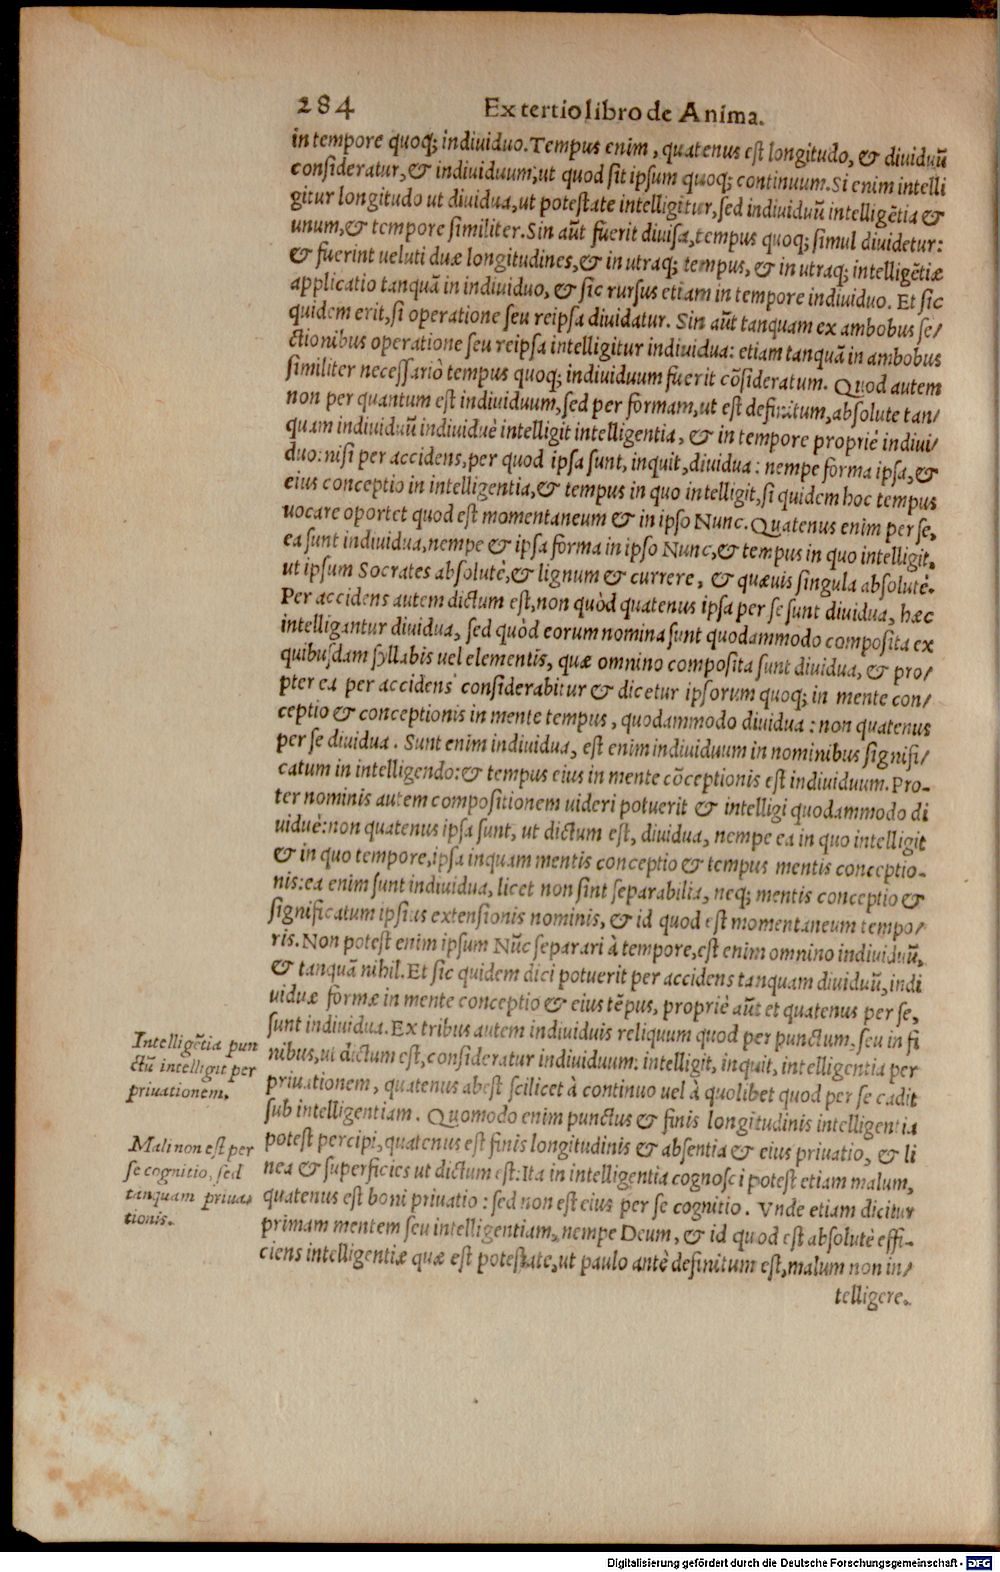 284 Ex tertio libro de Anima.
in tempore quoq; indiuiduo. Tempus enim, quatenus est longitudo, & diuiduū
consideratur, & indiuiduum, ut quod sit ipsum quoq; continuum. Si enim intelli
gitur longitudo ut diuidua, ut potestate intelligitur, sed indiuiduū intelligētia &
unum, & tempore similiter. Sin aūt fuerit diuisa, tempus quoq; simul diuidetur:
& fuerint ueluti duæ longitudines, & in utraq; tempus, & in utraq; intelligētiæ
applicatio tanquā in indiuiduo, & sic rursus etiam in tempore indiuiduo. Et sic
quidem erit, si operatione seu reipsa diuidatur. Sin aūt tanquam ex ambobus se/
ctionibus operatione seu reipsa intelligitur indiuidua: etiam tanquā in ambobus
similiter necessariò tempus quoq; indiuiduum fuerit cōsideratum. Quod autem
non per quantum est indiuiduum, sed per formam, ut est definitum, absolute tan/
quam indiuiduū indiuiduè intelligit intelligentia, & in tempore propriè indiui/
duo: nisi per accidens, per quod ipsa sunt, inquit, diuidua: nempe forma ipsa, &
eius conceptio in intelligentia, & tempus in quo intelligit, si quidem hoc tempus
uocare oportet quod est momentaneum & in ipso Nunc. Quatenus enim per se,
ea sunt indiuidua, nempe & ipsa forma in ipso Nunc, & tempus in quo intelligit,
ut ipsum Socrates absolutè, & lignum & currere, & quæuis singula absolutè.
Per accidens autem dictum est, non quòd quatenus ipsa per se sunt diuidua, hæc
intelligantur diuidua, sed quòd eorum nomina sunt quodammodo composita ex
quibusdam syllabis uel elementis, quæ omnino composita sunt diuidua, & pro/
pter ea per accidens considerabitur & dicetur ipsorum quoq; in mente con/
ceptio & conceptionis in mente tempus, quodammodo diuidua: non quatenus
per se diuidua. Sunt enim indiuidua, est enim indiuiduum in nominibus signifi/
catum in intelligendo: & tempus eius in mente cōceptionis est indiuiduum. Pro-
ter nominis autem compositionem uideri potuerit & intelligi quodammodo di
uiduè: non quatenus ipsa sunt, ut dictum est, diuidua, nempe ea in quo intelligit
& in quo tempore, ipsa inquam mentis conceptio & tempus mentis conceptio-
nis: ea enim sunt indiuidua, licet non sint separabilia, neq; mentis conceptio &
significatum ipsius extensionis nominis, & id quod est momentaneum tempo/
ris. Non potest enim ipsum Nūc separari à tempore, est enim omnino indiuiduū,
& tanquā nihil. Et sic quidem dici potuerit per accidens tanquam diuiduū, indi
uiduæ formæ in mente conceptio & eius tēpus, propriè aūt et quatenus per se,
sunt indiuidua. Ex tribus autem indiuiduis reliquum quod per punctum, seu in fi
nibus, ut dictum est, consideratur indiuiduum: intelligit, inquit, intelligentia per
priuationem, quatenus abest scilicet à continuo uel à quolibet quod per se cadit
sub intelligentiam. Quomodo enim punctus & finis longitudinis intelligentia
potest percipi, quatenus est finis longitudinis & absentia & eius priuatio, & li
nea & superficies ut dictum est: Ita in intelligentia cognosci potest etiam malum,
quatenus est boni priuatio: sed non est eius per se cognitio. Vnde etiam dicitur
primam mentem seu intelligentiam, nempe Deum, & id quod est absolutè effi-
ciens intelligentiæ quæ est potestate, ut paulo antè definitum est, malum non in/
telligere.
Intelligētia pun
ctū intelligit per
priuationem.
Mali non est per
se cognitio, sed
tanquam priua-
tionis.
Digitalisierung gefördert durch die Deutsche Forschungsgemeinschaft - DFG